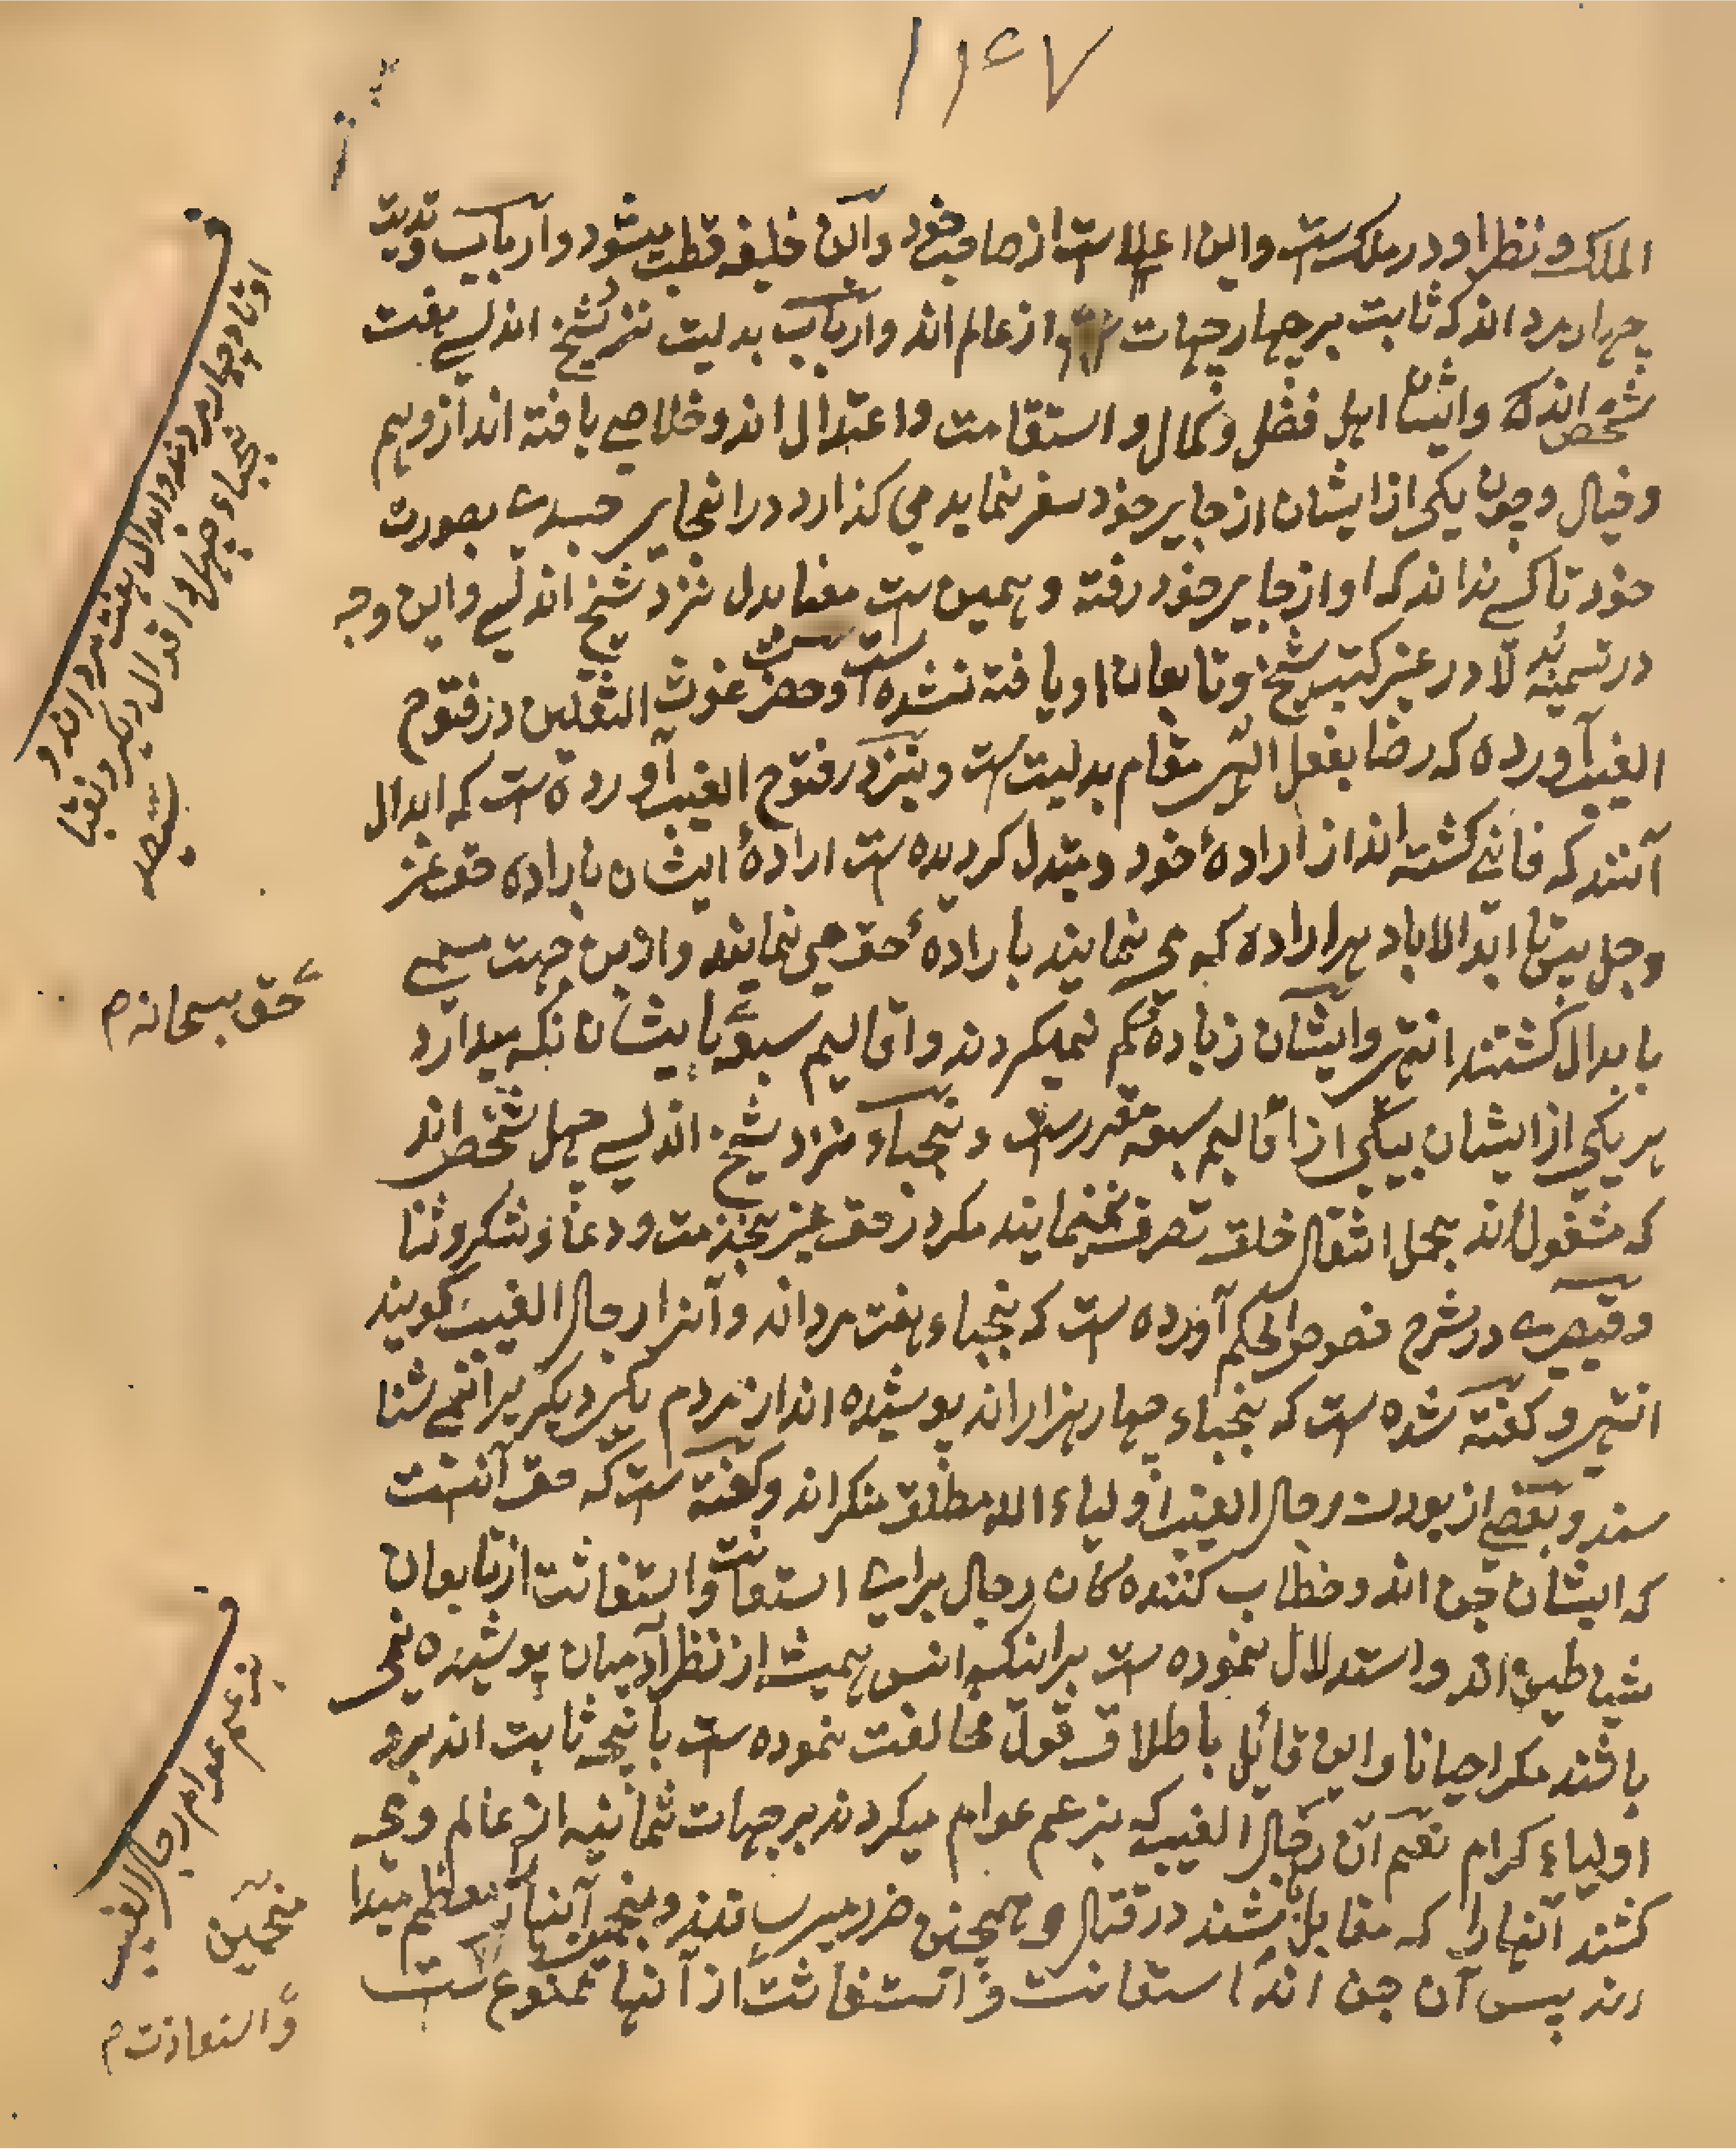 ۱۱۴۷
الملک و نظر او در ملک ست و این اعلا ست از صاحب خود و این خلیفه قطب میشود و ارباب وتدیت
چهار مرد اند که ثابت بر چهار جهات از عالم اند و ارباب بدلیت نزد شیخ اندلسے هفت
شخص اند که وایشان اهل فضل و کمال و استقامت و اعتدال اند و خلاصے یافته اند از وهم
و خیال و چون یکی از ایشان از جایر خود سفر نماید می کذارد در انجایر جسدے بصورت
خود تا کسے نداند که او از جایر خود رفته و همین ست معنا بدل نزد شیخ اندلسے و این وجه
در تسمیه بُدَلا در غیر کتب شیخ و تابعان او یافته نشده است و حضرت غوث الثقلین در فتوح
الغیب آورده که رضا بفعل الهی مقام بدلیت ست و نیز در فتوح الغیب آورده ست که ابدال
آنند که فانے کشته اند از ارادهٔ خود و مبتدل کردیده ست ارادهٔ ایشان باراده حق عز
و جل پس تا ابد الاباد هر اراده که می نمایند بارادهٔ حق می نمایند و ازین جهت مسمے
بابدال کشتند انتهی و ایشان زیاده و کم نمیکردند و اقالیم سبعه بایشان نکه میدارد
هر یکی از ایشان بیکی از اقالیم سبعه مقرر ست و نجباء نزد شیخ اندلسے چهل شخص اند
که مشغول اند بحمل اثقال خلق تصرف نمینمایند مکر در حق غیر بخدمت و دعا و شکر و ثنا
و قیصرے در شرح فصوص الحکم آورده ست که نجباء هفت مرد اند و آنرا رجال الغیب کویند
انتهی و کفته شده ست که نجباء چهار هزار اند پوشیده اند از مردم یکدیکر را نمے شنا
سند و بعضے از بودن رجال الغیب اولیاء الله مطلق منکر اند و کفته ست که حق آنست
که ایشان جن اند و خطاب کننده کان رجال براے استعانت و استغاثت از تابعان
شیاطین اند و استدلال نموده ست براینکه انس همیشه از نظر آدمیان پوشیده نمی
باشند مکر احیانا و این قایل باطلاق قول مخالفت نموده ست بآنچه ثابت اند نزد
اولیاء کرام نعم آن رجال الغیب که بزعم عوام میکردند بر جهات ثمانیه از عالم و می
کشند آنها را که مقابل شند در قتال و همچنین ضرر میرسانند و منجمین آنها را معظم میدا
رند پس آن جن اند استعانت و استغاثت از آنها ممنوع ست
اوتاد چهار مردند و ابدال هفت مرد اند و
نجباء چهل و اقوال دیکر و نقبا
سیصد
حق سبحانه م
بزعم عوام رجال الغیب
منجمین
و استعاذت م